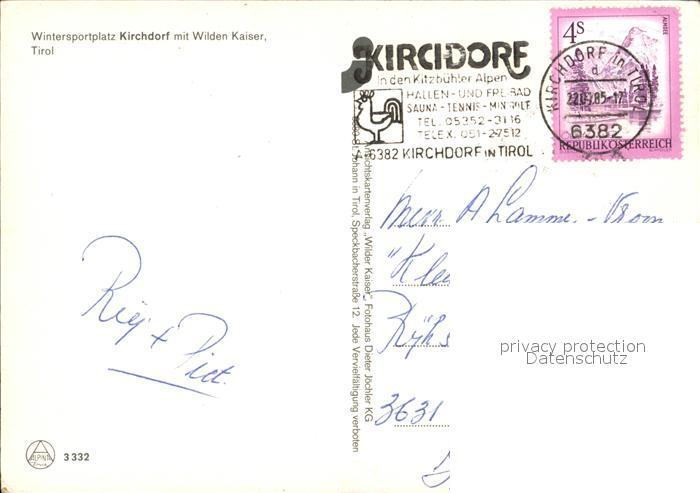 Wintersportplatz Kirchdorf mit Wilden Kaiser,
Tirol
KIRCHDORF
in den Kitzbühler Alpen
HALLEN- UND FREIBAD
SAUNA - TENNIS - MINIGOLF
TEL. 05352-3116
TELEX. 051-27512
A-6382 KIRCHDORF IN TIROL
KIRCHDORF in TIROL
d
.85-17
6382
4S
ALMSEE
REPUBLIK ÖSTERREICH
Ansichtskartenverlag „Wilder Kaiser", Fotohaus Dieter Jöchler KG
6380 St. Johann in Tirol, Speckbacherstraße 12. Jede Vervielfältigung verboten
A Lamme. - Kroon
"Kle
Rijks
3631
privacy protection
Datenschutz
+ Piet.
ALPINA
3 332